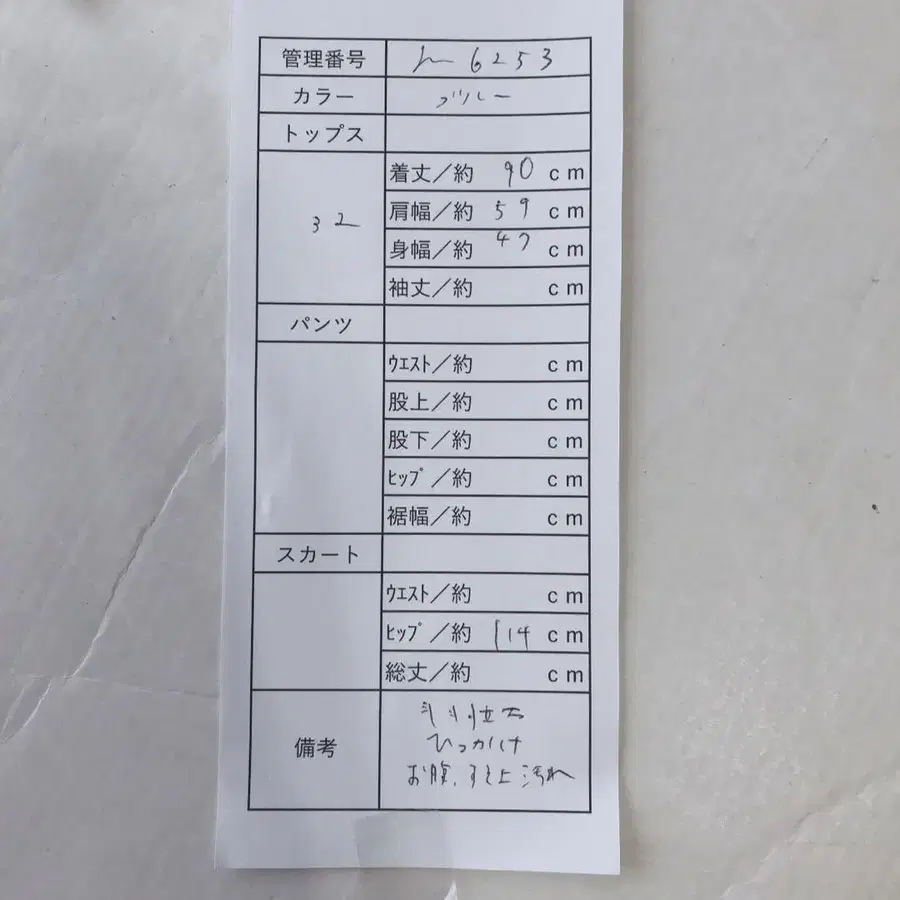 管理番号 6253
カラー ブルー
トップス
32
着丈／約 90 cm
肩幅／約 59 cm
身幅／約 47 cm
袖丈／約 cm
パンツ
ｳｴｽﾄ／約 cm
股上／約 cm
股下／約 cm
ﾋｯﾌﾟ／約 cm
裾幅／約 cm
スカート
ｳｴｽﾄ／約 cm
ﾋｯﾌﾟ／約 114 cm
総丈／約 cm
備考
ひっかけ
お腹、すそ上汚れ